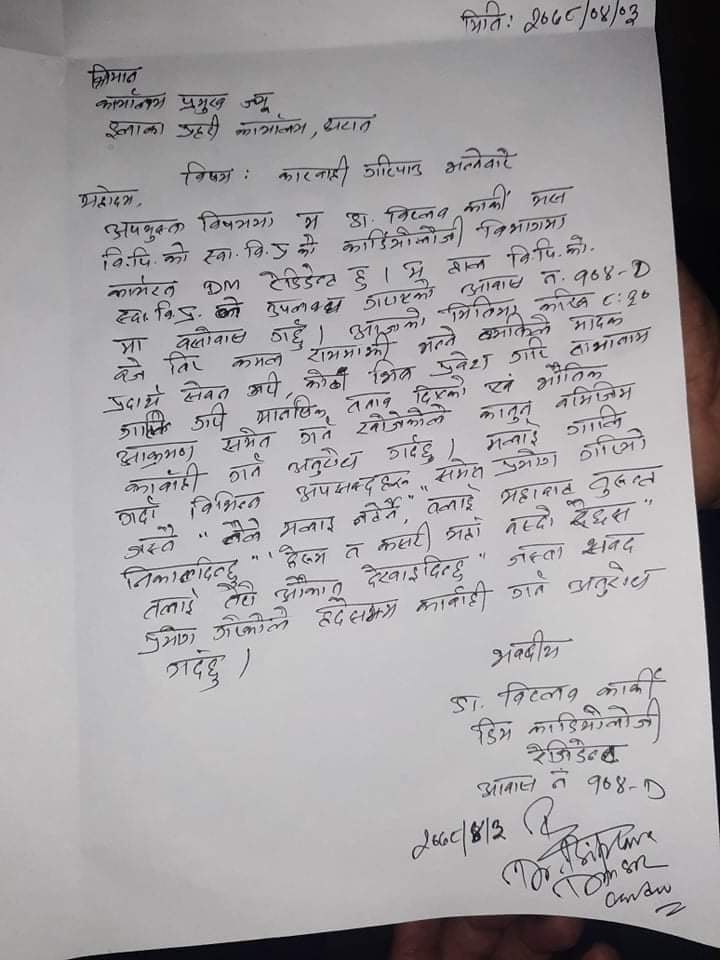 मिति: २०७८/०४/०३
श्रीमान
कार्यालय प्रमुख ज्यू
इलाका प्रहरी कार्यालय, धरान
विषय: कारवाही गरिपाउ भन्नेवारे
महोदय,
उपयुक्त विषयमा म डा. विप्लव कार्की यस
वि.पि.को स्वा.वि.प्र को कार्डियोलोजी विभागमा
कार्यरत DM रेजिडेन्ट हु। म हाल वि.पि.को.
स्वा.वि.प्र. को उपलब्ध गराएको आवास नं. १०४-D
मा वसोवास गर्छु। आजको मितिमा करिव ८:१०
वजे तिर कमल राममाझी भन्ने व्यक्तिले मादक
प्रदार्थ सेवन गरी, कोठा भित्र प्रवेश गरि
गालि गरी मानषिक तनाव दिएको एवं भौतिक
आक्रमण समेत गर्न खोजेकोले कानुन वमोजिम
कार्वाही गर्न अनुरोध गर्दछु। मलाई गालि
गर्दा विभिन्न अपशब्दहरू समेत प्रयोग गरिओ
जस्तै "तैले मलाइ नटेर्ने, तलाई यहावाट तुरुन्त
निकालदिन्छु" "हेरुम त कसरी यहां वस्दो रैछस"
तलाई तेरो औकात देखाइदिन्छु" जस्ता शब्द
प्रयोग गरेकोले हदैसम्म कार्वाही गर्न अनुरोध
गर्दछु।
भवदीय
डा. विप्लव कार्की
डिम कार्डियोलोजी
रेजिडेन्ट
आवास नं १०४-D
२०७८/४/३